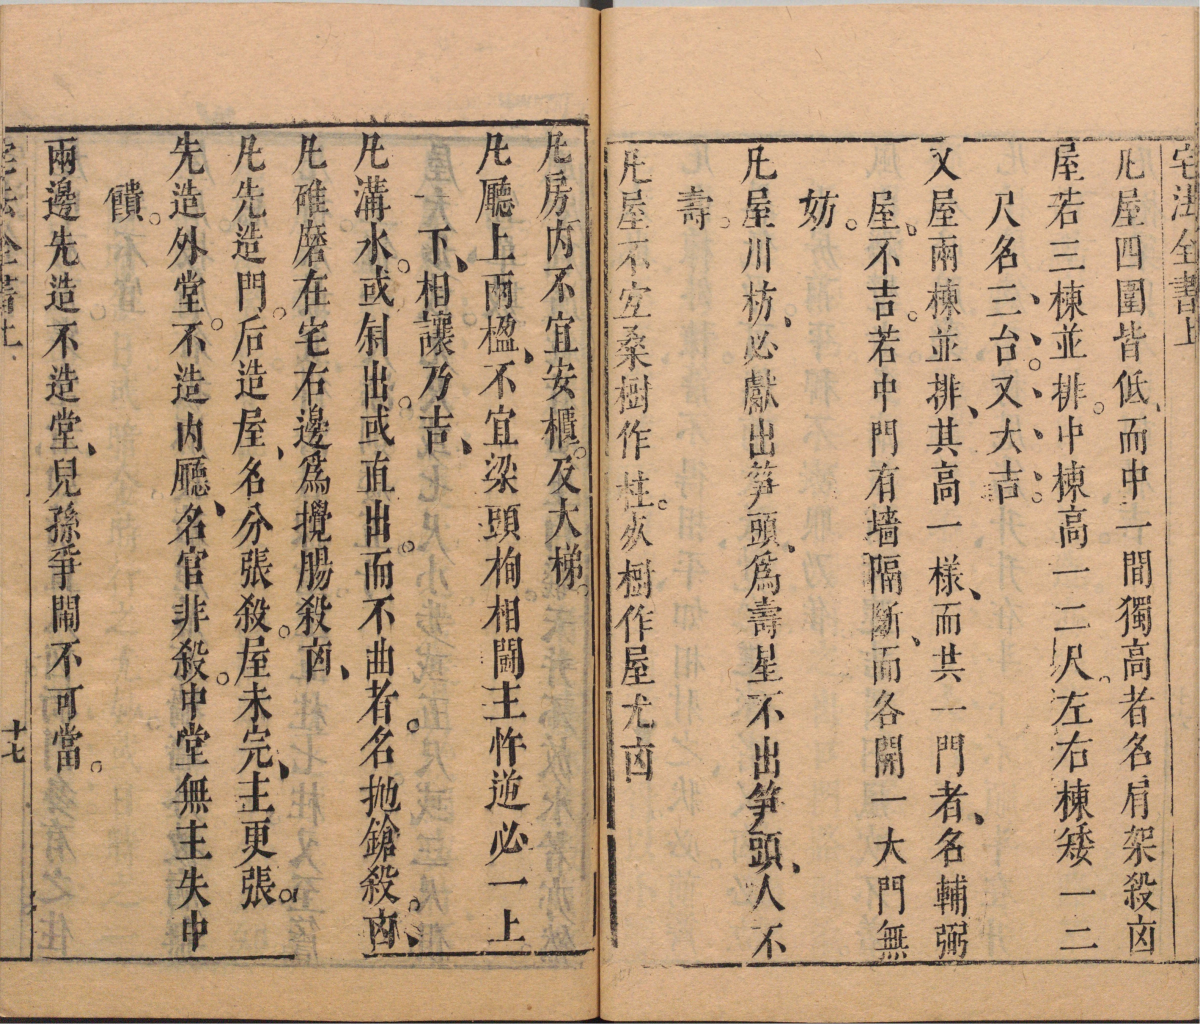 宅法全書上
凡屋四圍皆低、而中一間獨高者名肩架殺凶
屋若三棟並排。中棟高一二尺。左右棟矮一二
尺名三台又大吉
又屋兩棟並排、其高一樣、而共一門者、名輔弼
屋、不吉。若中門有墻隔斷、而各開一大門無
妨。
凡屋川枋、必獻出笋頭、爲壽星不出笋頭、人不
壽。
凡屋不宜桑樹作柱。 樹作屋尤凶
凡房内不宜安櫃。及大梯。
凡廳上兩楹、不宜梁頭 相鬭主忤逆必一上
一下、相讓乃吉、
凡溝水。或斜出。或直出。而不曲者。名抛鎗殺。凶、
凡碓磨在宅右邊爲攪腸殺凶、
凡先造門。后造屋、名分張殺。屋未完、主更張。
先造外堂。不造内廳、名官非殺。中堂無主失中
饋。
兩邊先造不造堂、兒孫爭鬧不可當。
宅法全書上
十七